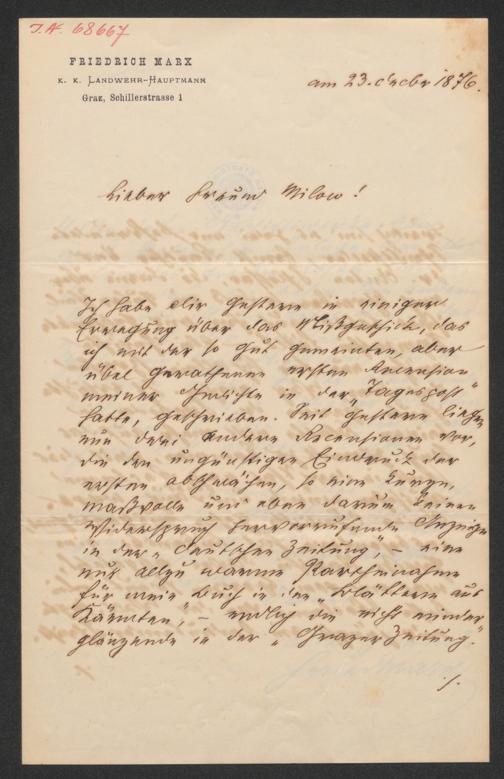 J.N. 68667
FRIEDRICH MARX
K. K. LANDWEHR-HAUPTMANN
Graz, Schillerstrasse 1
am 23. Decbr 1876.
Lieber Freund Milow!
Ich habe Dir gestern in einiger
Erregung über das Mißgeschick, das
ich mit der so gut gemeinten, aber
übel gerathenen ersten Recension
meiner Gedichte in der „Tagespost"
hatte, geschrieben. Seit gestern liegen
nun drei andere Recensionen vor,
die den ungünstigen Eindruck der
ersten abschwächen, so eine kurze,
maßvolle und eben darum keinen
Widerspruch hervorrufende Anzeige
in der „Deutschen Zeitung", – eine
nur allzu warme Parteinahme
für mein Buch in den „Blättern aus
Kärnten", – endlich die nicht minder
glänzende in der „Grazer Zeitung."
./.